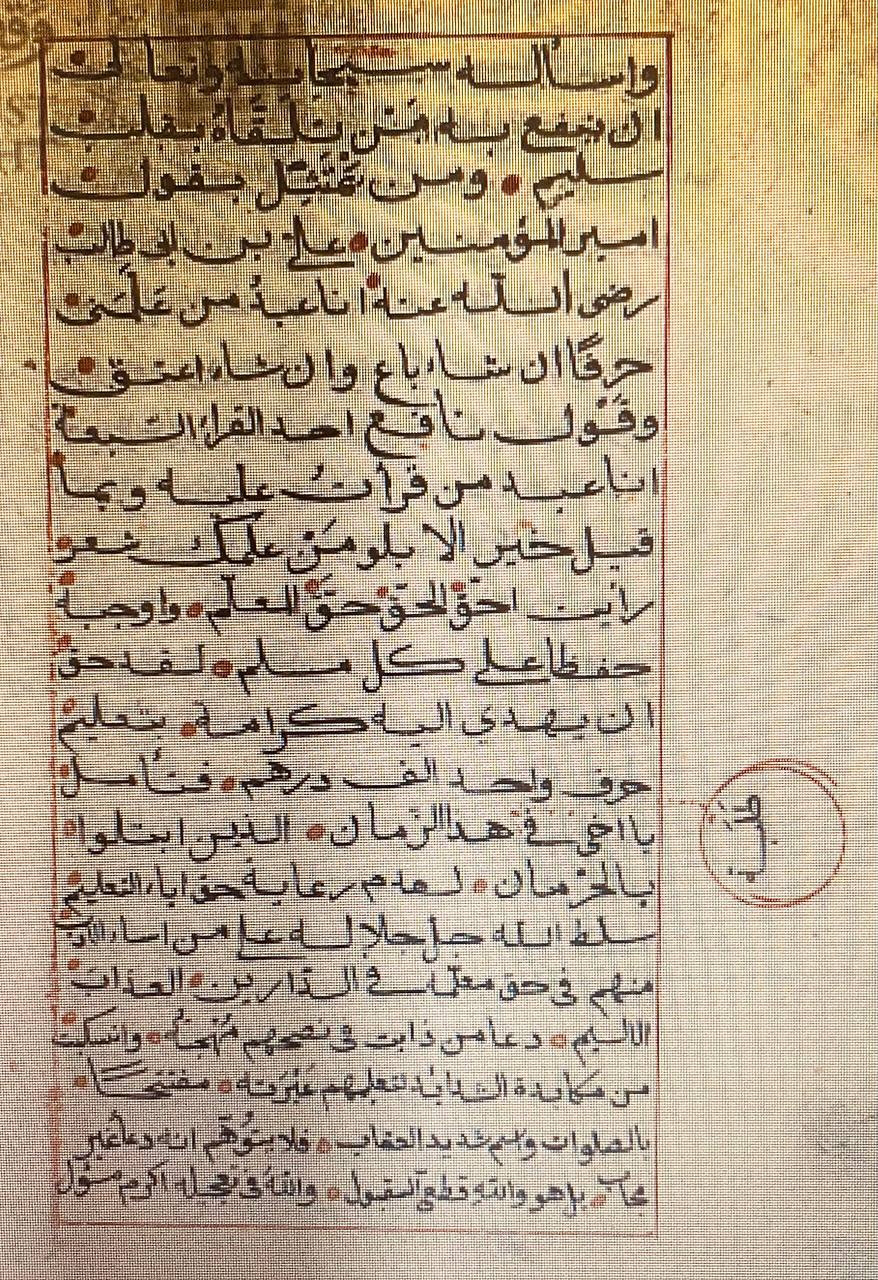 واساله سبحانه وتعالى
ان ينفع به من يتلقاه بقلب
سليم ومن يمتثل بقول
امير المؤمنين علي بن ابي طالب
رضى الله عنه انا عبد من علمنى
حرفا ان شاء باع وان شاء اعتق
وقول نافع احد القراء السبعة
انا عبد من قرأت عليه وبما
قيل خير الا بلو من علمك شعر
رأيت احق الحق حق المعلم واوجبه
حفظا على كل مسلم لقد حق
ان يهدى اليه كرامة بتعليم
حرف واحد الف درهم فتأمل
يا اخى فى هذا الزمان الذين ابتلوا
بالحرمان لعدم رعاية حق اباء التعليم
سلط الله جل جلاله على من اساء الادب
منهم فى حق معلمه فى الدارين العذاب
الاليم دعا من ذابت فى نصحهم مهجته وانسكبت
من مكابدة الشدايد لتعليمهم عبرته مفتتحا
بالصلوات واسم شديد العقاب فلا يتوهم انه دعا غير
مجاب بل هو والله قطعي القبول والله فى تعجيله اكرم مسؤل